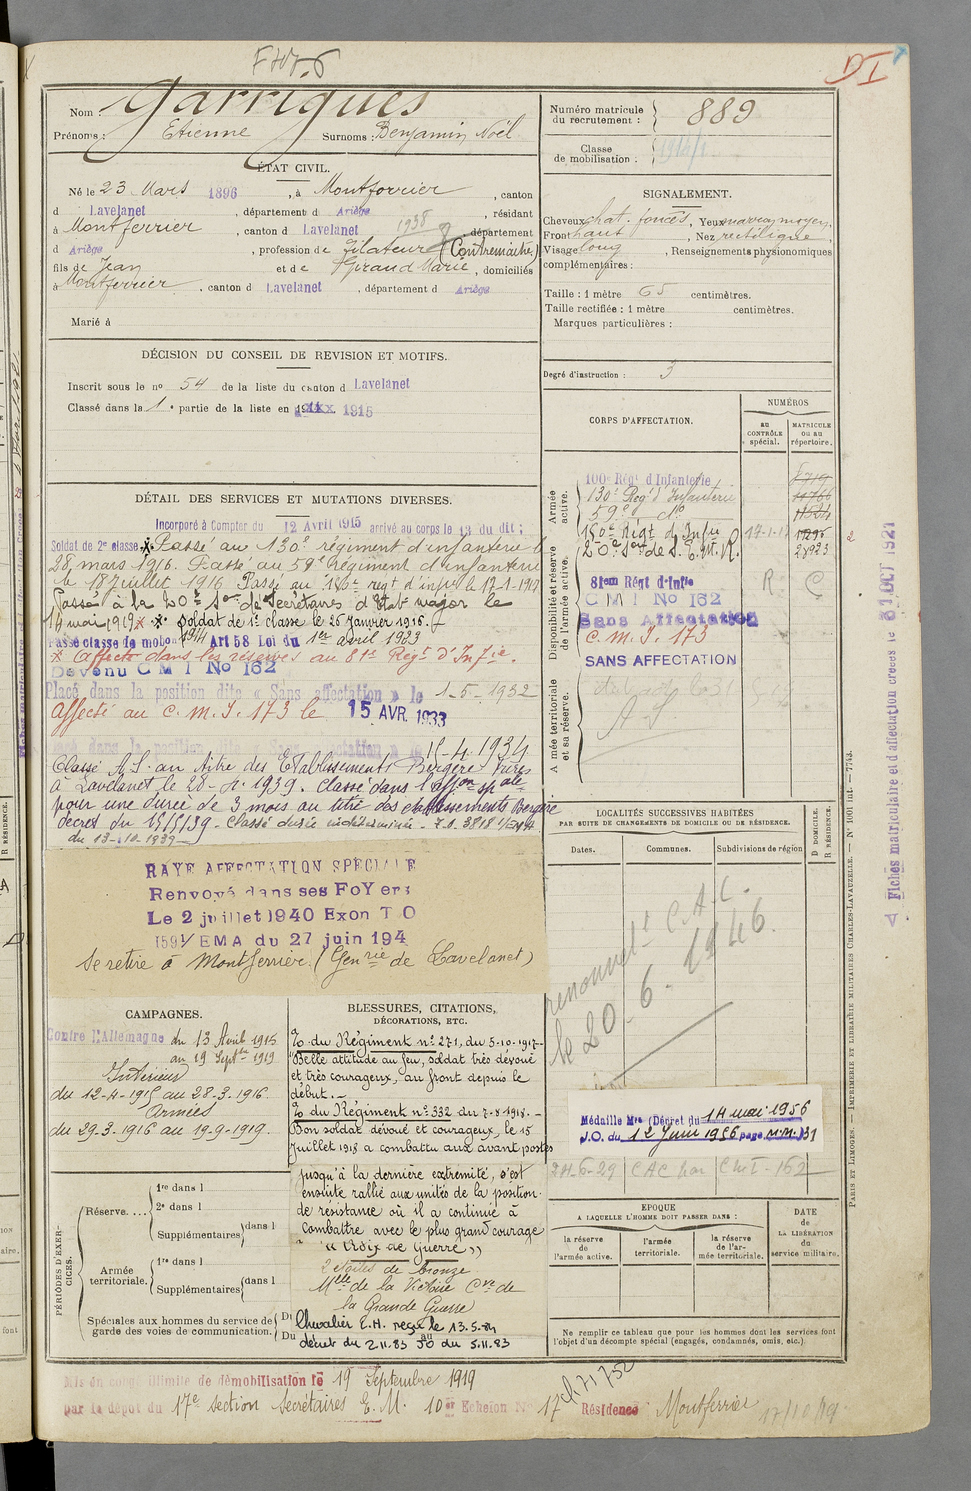 DI
Nom : Garrigues
Prénoms : Etienne Surnoms : Benjamin, Noël
ÉTAT CIVIL.
Né le 23 Mars 1896, à Montferrier, canton
d Lavelanet, département d Ariège, résidant
à Montferrier, canton d Lavelanet 1938, département
d Ariège, profession de filateur (Contremaître)
fils de Jean et de Giraud Marie, domiciliés
à Montferrier, canton d Lavelanet, département d Ariège
Marié à
DÉCISION DU CONSEIL DE REVISION ET MOTIFS.
Inscrit sous le no 54 de la liste du canton d Lavelanet
Classé dans la 1e partie de la liste en 1915
DÉTAIL DES SERVICES ET MUTATIONS DIVERSES.
Incorporé à Compter du 12 Avril 1915 arrivé au corps le 13 du dit ;
Soldat de 2e classe. Passé au 130e régiment d'infanterie le
28 mars 1916. Passé au 59e Régiment d'infanterie
le 18 juillet 1916 Passé au 160e regt d'infie le 17-1-1917
Passé à la 20e Son de Secrétaires d'Etat-major le
14 mai 1919 x x Soldat de 1e classe le 26 Janvier 1916.
Passé classe de mobon 1914 Art 58 Loi du 1er avril 1933
x Affecté dans les réserves au 81e Régt d'Infie.
Devenu C M I No 162
Placé dans la position dite « Sans affectation » le 1-5-1932
Affecté au C.M.I. 173 le 15 AVR. 1933
dans la position dite « Sans affectation » le 15-4-1934
Classé A.S. au titre des Etablissements Bergère Frères
à Lavelanet le 28-4-1939. Classé dans l'affon spale
pour une durée de 3 mois au titre des établissements Bergère
décret du 15/5/39 - Classé durée indéterminée - T.O. 3818 1/EMA
du 13-10-1939
RAYE AFFECTATION SPECIALE
Renvoyé dans ses FoYers
Le 2 juillet 1940 Exon T O
1591/EMA du 27 juin 194
Se retire à Montferrier (Genrie de Lavelanet)
CAMPAGNES.
Contre l'Allemagne du 13 Avril 1915
au 19 Septbre 1919
Intérieur
du 12-4-1915 au 28-3-1916.
Armées
du 29-3-1916 au 19-9-1919.
BLESSURES, CITATIONS,
DÉCORATIONS, ETC.
O. du Régiment no 271, du 5-10-1917-
"Belle attitude au feu, soldat très dévoué
et très courageux, au front depuis le
début. -
O. du Régiment no 332 du 7-8-1918. -
Bon soldat dévoué et courageux, le 15
Juillet 1918 a combattu aux avant postes
jusqu'à la dernière extrémité, s'est
ensuite rallié aux unités de la position
de résistance où il a continué à
combattre avec le plus grand courage
"Croix de Guerre"
2 étoiles de bronze
Mlle de la Victoire Cve de
la Grande Guerre
Chevalier L.H. reçu le 13.5.84
décret du 2.11.83 JO du 5.11.83
PÉRIODES D'EXERCICES.
Réserve....
1re dans l
2e dans l
Supplémentaires dans l
Armée territoriale.
1re dans l
Supplémentaires dans l
Spéciales aux hommes du service de garde des voies de communication.
Du au
Du
Mis en congé illimité de démobilisation le 19 Septembre 1919
par le dépôt du 17e Section Secrétaires E. M. 10e Echelon No 17 Résidence Montferrier 17/10/19
Numéro matricule
du recrutement : 889
Classe
de mobilisation : 1914/1
SIGNALEMENT.
Cheveux chat. foncés, Yeux marron moyen,
Front haut, Nez rectiligne,
Visage long, Renseignements physionomiques
complémentaires :
Taille : 1 mètre 65 centimètres.
Taille rectifiée : 1 mètre centimètres.
Marques particulières :
Degré d'instruction : 3
CORPS D'AFFECTATION.
NUMÉROS
AU CONTRÔLE spécial.
MATRICULE ou au répertoire.
Armée active.
100e Régt d'Infanterie
130e Régt d'Infanterie
59e do
160e Régt d'Infie
20e Son de S. E. M. R.
Disponibilité et réserve de l'armée active.
81em Régt d'Infie R C
C M I No 162
Sans Affectation
C.M.I. 173
SANS AFFECTATION
Armée territoriale et sa réserve.
A S
LOCALITÉS SUCCESSIVES HABITÉES
PAR SUITE DE CHANGEMENTS DE DOMICILE OU DE RÉSIDENCE.
Dates. Communes. Subdivisions de région
D DOMICILE.
R RÉSIDENCE.
renouvelt C.A.C.
le 20-6-1946.
Médaille Mre (Décret du 14 mai 1956
J.O. du 12 Juin 1956 page
24-6-29 CAC par CMI-162
EPOQUE
A LAQUELLE L'HOMME DOIT PASSER DANS :
la réserve de l'armée active.
l'armée territoriale.
la réserve de l'armée territoriale.
DATE
de
LA LIBÉRATION
du
service militaire.
Ne remplir ce tableau que pour les hommes dont les services font
l'objet d'un décompte spécial (engagés, condamnés, omis, etc.).
PARIS ET LIMOGES. — IMPRIMERIE ET LIBRAIRIE MILITAIRES CHARLES-LAVAUZELLE. — No 1001 int. — 7743.
Fiches matriculaire et d'affectation créées le 31 OCT 1921